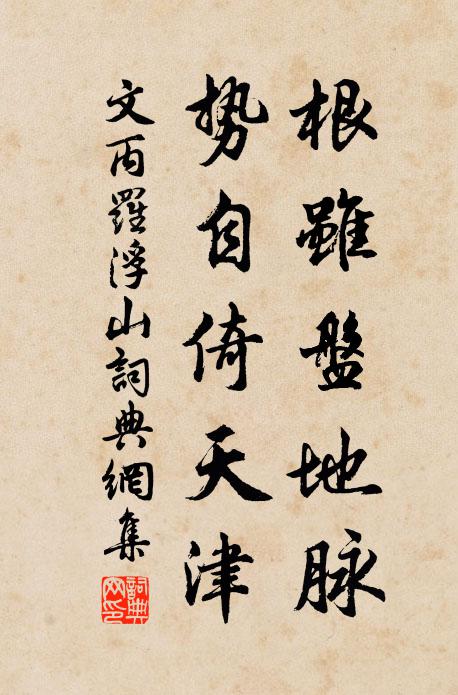 根雖盤地脉
势自倚天津
文丙羅浮山詞典網集
詞典網印